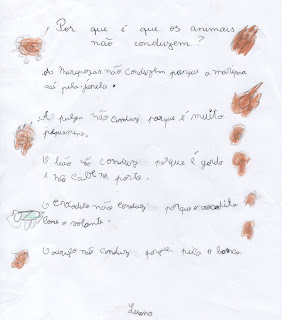 Por que é que os animais
não conduzem?
As mariposas não conduzem porque a mariposa
sai pela janela.
A pulga não conduz porque é muito
pequenina.
O leão não conduz porque é gordo
e não cabe na porta.
O crocodilo não conduz porque o crocodilo
come o volante.
O ouriço não conduz porque pica o banco